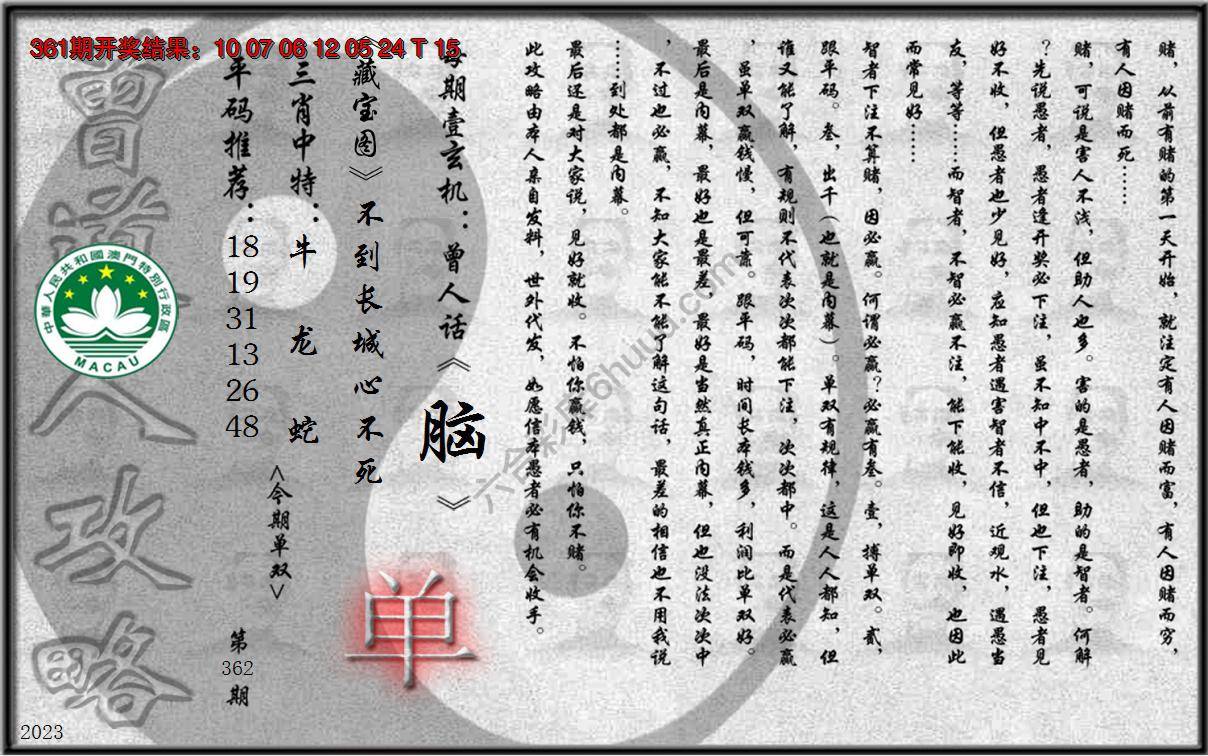 361期开奖结果：10 07 06 12 05 24 T 15
赌，从前有赌的第一天开始，就注定有人因赌而富，有人因赌而穷，
有人因赌而死……
赌，可说是害人不浅，但助人也多。害的是愚者，助的是智者。何解
？先说愚者，愚者逢开奖必下注，虽不知中不中，但也下注，愚者见
好不收，但愚者也少见好，应知愚者遇害智者不信，近观水，遇愚当
友，等等……而智者，不智必赢不注，能下能收，见好即收，也因此
而常见好……
智者下注不算赌，因必赢。何谓必赢？必赢有叁。壹，搏单双。贰，
跟平码。叁，出千（也就是内幕）。单双有规律，这是人人都知，但
谁又能了解，有规则不代表次次都能下注，次次都中。而是代表必赢
，虽单双赢钱慢，但可靠。跟平码，时间长本钱多，利润比单双好。
最后是内幕，最好也是最差，最好是当然真正内幕，但也没法次次中
，不过也必赢，不知大家能不能了解这句话，最差的相信也不用我说
……到处都是内幕。
最后还是对大家说，见好就收。不怕你赢钱，只怕你不赌。
此攻略由本人亲自发料，世外代发，如愿信本愚者必有机会收手。
每期壹玄机：曾人话《脑》
《藏宝图》不到长城心不死
三肖中特：牛 龙 蛇
平码推荐：18 19 31 13 26 48
<今期单双>
单
第362期
曾道人攻略
中華人民共和國澳門特別行政區
MACAU
2023